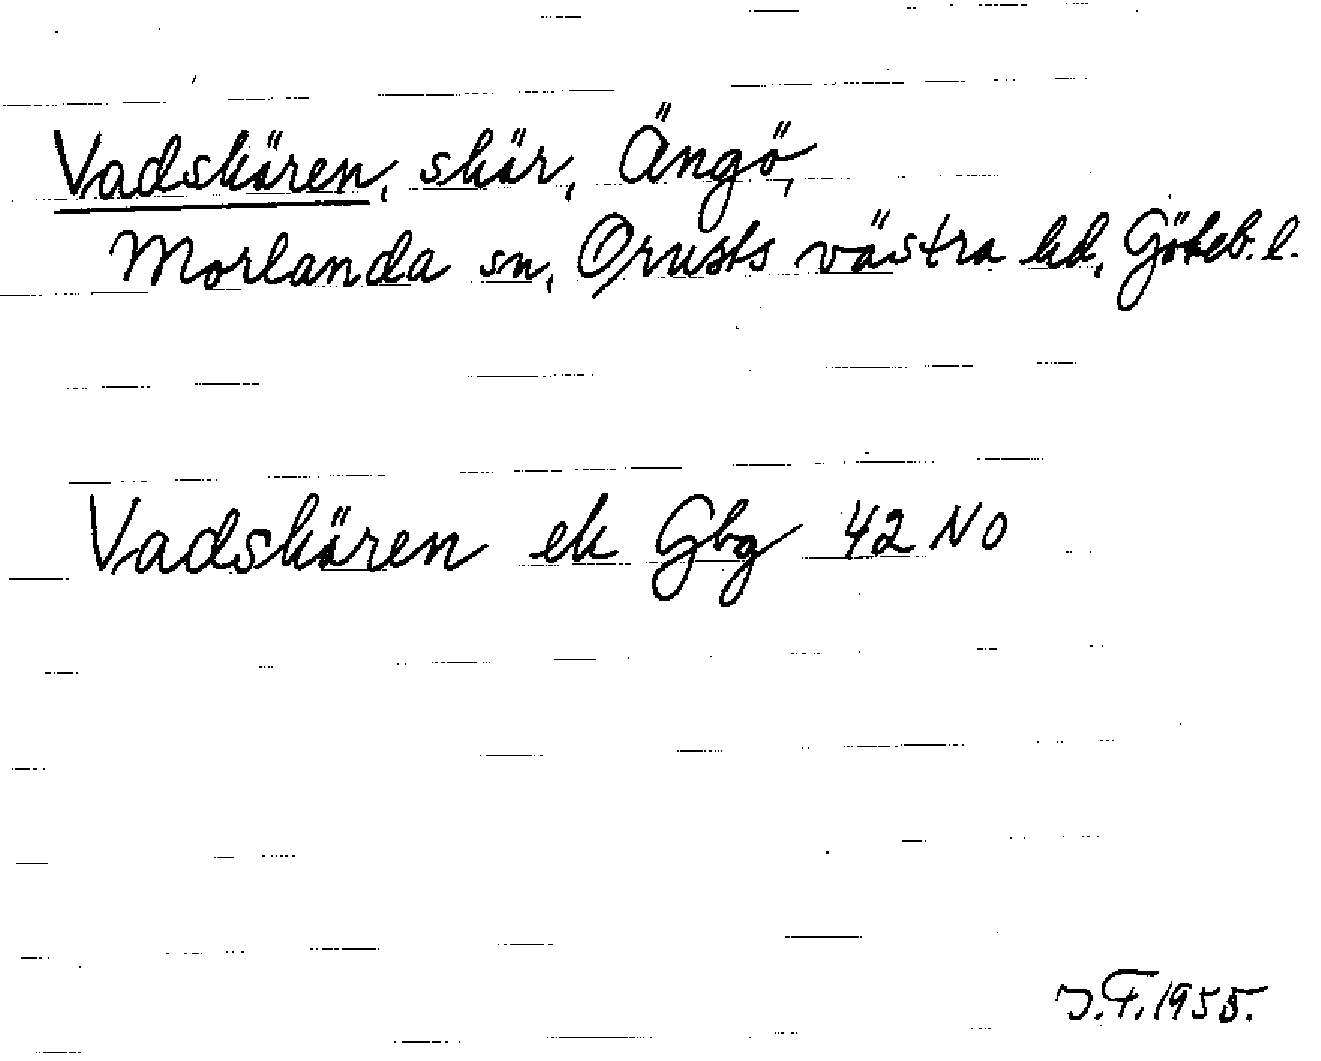 Vadskären, skär, Ängö,
Morlanda sn, Orusts västra hd, Göteb. l.
Vadskären ek Gbg 42 NO
J.F. 1955.